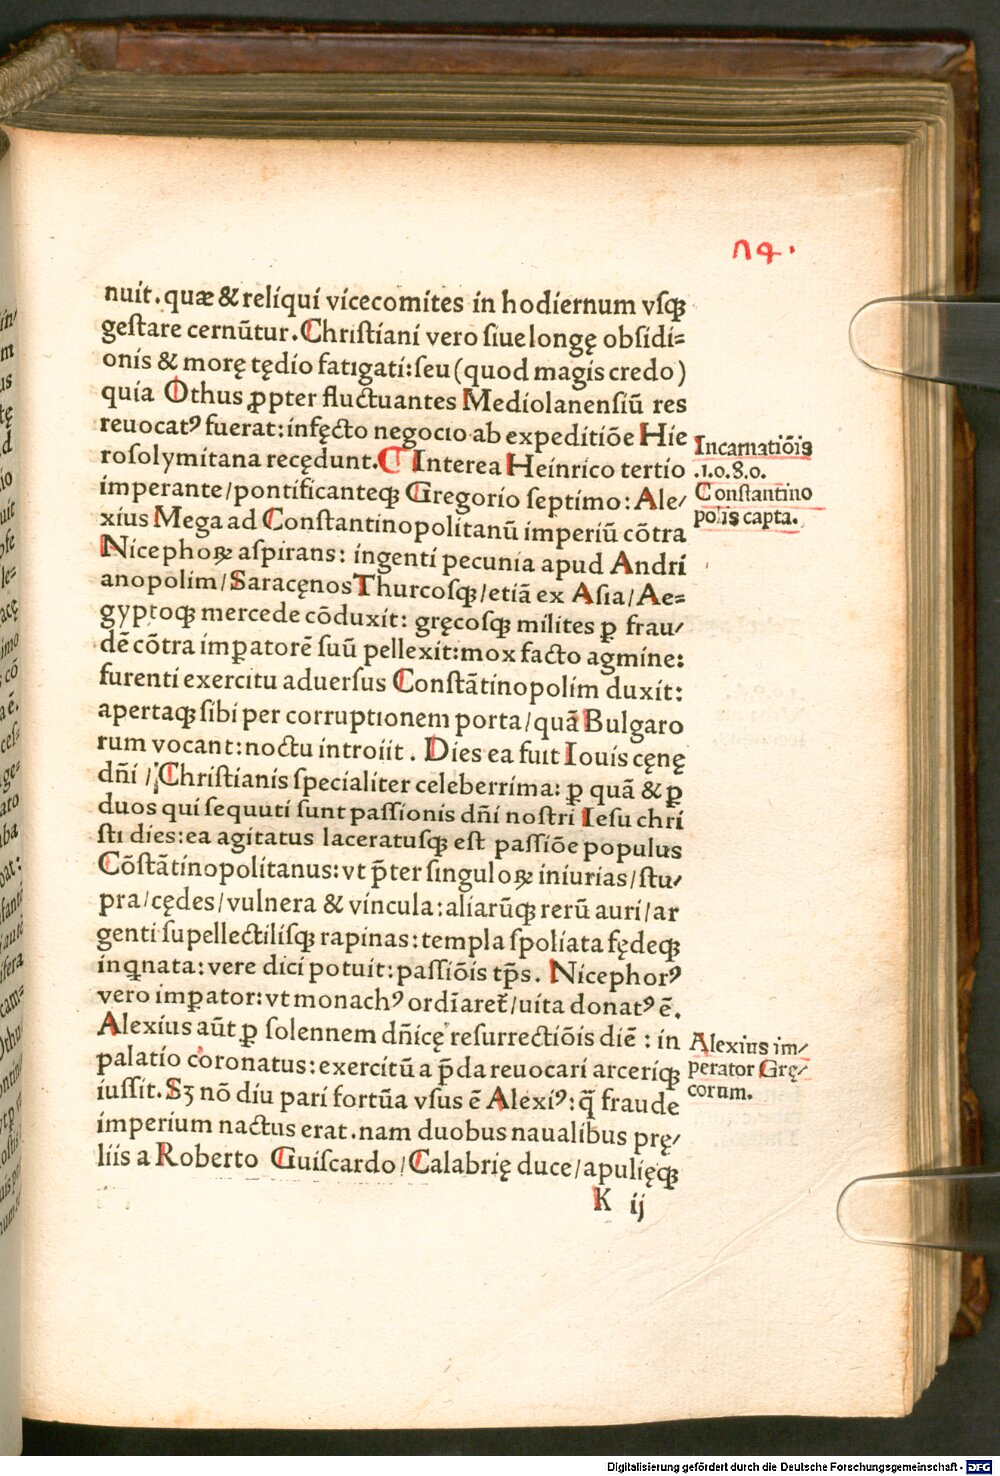 74.
nuit. quæ & reliqui vicecomites in hodiernum vsqꝫ
gestare cernũtur. Christiani vero siue longę obsidi=
onis & morę tędio fatigati: seu (quod magis credo)
quia Othus ꝓpter fluctuantes Mediolanensiũ res
reuocatꝰ fuerat: infęcto negocio ab expeditiõe Hie
rosolymitana recędunt. ¶ Interea Heinrico tertio
imperante/pontificanteqꝫ Gregorio septimo: Ale/
xius Mega ad Constantinopolitanũ imperiũ cõtra
Nicephoꝝ aspirans: ingenti pecunia apud Andri
anopolim/Saracęnos Thurcosqꝫ/etiã ex Asia/Ae=
gyptoqꝫ mercede cõduxit: gręcosqꝫ milites ꝑ frau/
dẽ cõtra imꝑatorẽ suũ pellexit: mox facto agmine:
furenti exercitu aduersus Constãtinopolim duxit:
apertaqꝫ sibi per corruptionem porta/quã Bulgaro
rum vocant: noctu introiit. Dies ea fuit Iouis cęnę
dñi / Christianis specialiter celeberrima: ꝑ quã & ꝑ
duos qui sequuti sunt passionis dñi nostri Iesu chri
sti dies: ea agitatus laceratusqꝫ est passiõe populus
Cõstãtinopolitanus: vt p̃ter singuloꝝ iniurias/stu/
pra/cędes/vulnera & vincula: aliarũqꝫ rerũ auri/ar
genti supellectilisqꝫ rapinas: templa spoliata fędeqꝫ
inqnata: vere dici potuit: passiõis tp̃s. Nicephorꝰ
vero imꝑator: vt monachꝰ ordĩaret̃/uita donatꝰ ẽ.
Alexius aũt ꝑ solennem dñicę resurrectiõis diẽ: in
palatio coronatus: exercitũ a p̃da reuocari arceriqꝫ
iussit. Sꝫ nõ diu pari fortũa vsus ẽ Alexiꝰ: q̃ fraude
imperium nactus erat. nam duobus naualibus prę/
liis a Roberto Guiscardo/Calabrię duce/apulięqꝫ
K ij
Incarnatiõis
.1.0.8.0.
Constantino
polis capta.
Alexius im/
perator Grę/
corum.
Digitalisierung gefördert durch die Deutsche Forschungsgemeinschaft - DFG